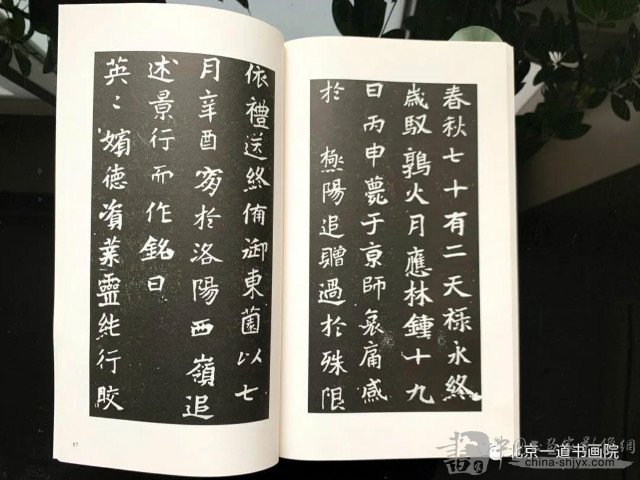 春秋七十有二天禄永終
歳馭鶉火月應林鍾十九
日丙申薨于京師哀痛感
於極陽追贈過於殊限
依禮送終備御東園以七
月辛酉窆於洛陽西嶺追
述景行而作銘曰
英〻嬪德資業靈純行皎
87
北京一道书画院
china-shjyx.com